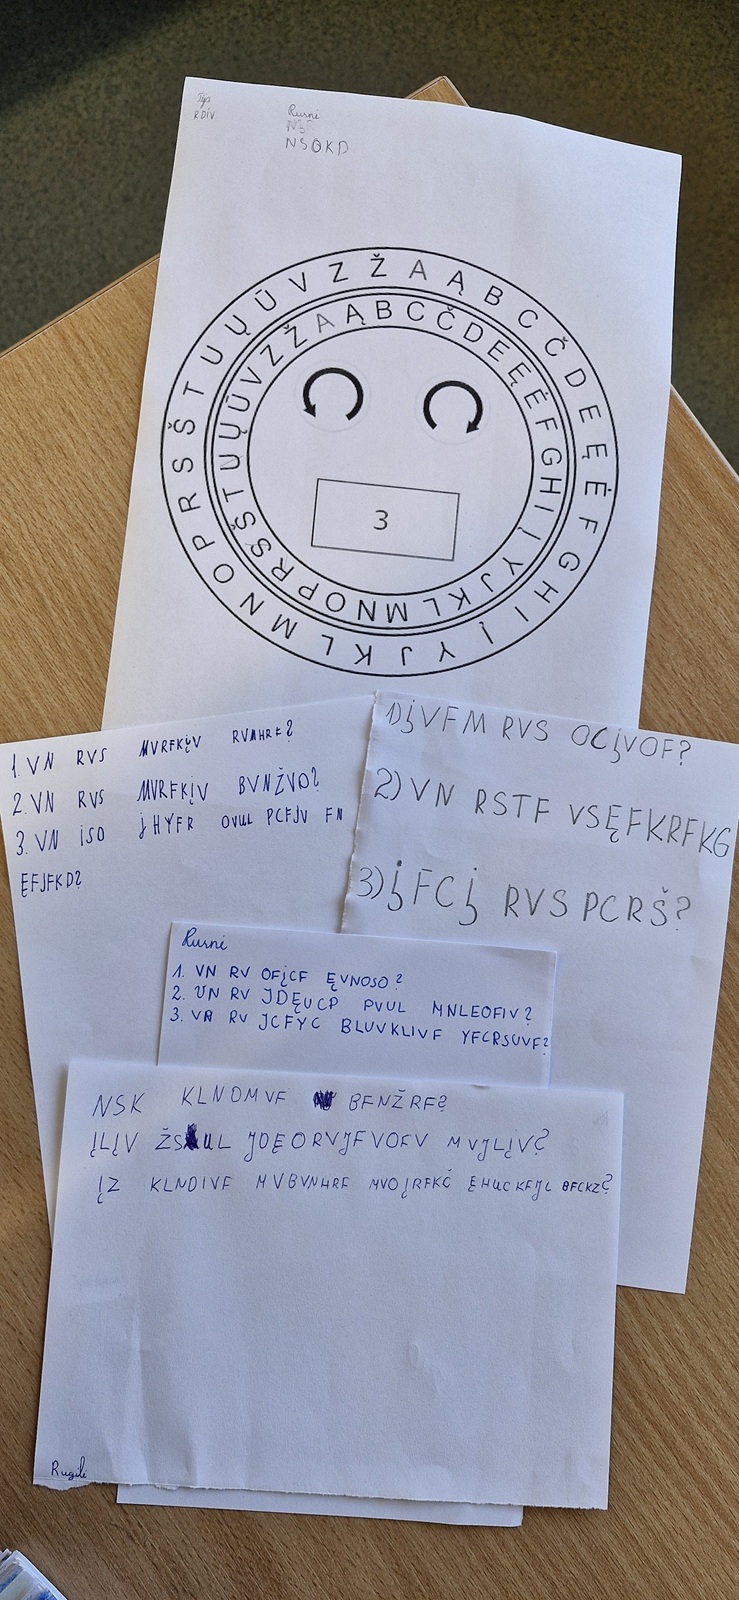 Ilja
RDIV
Rusnė
NSOKD
A Ą B C Č D E Ę Ė F G H I Į Y J K L M N O P R S Š T U Ų Ū V Z Ž
A Ą B C Č D E Ę Ė F G H I Į Y J K L M N O P R S Š T U Ų Ū V Z Ž
3
1. VN RVS MVRFKĮV RVNHRF?
2. VN RVS MVRFKĮV BVNŽVO?
3. VN ISO ĮHYFR OVUL PCFĮV FN
ĘFJFKD?
1) ĮVFM RVS OCĮVOF?
2) VN RSTF VSĘFKRFKG
3) ĮFCĮ RVS PCRŠ?
Rusnė
1. VN RV OFĮCF ĘVNOSO?
2. VN RV JDĘUCP PVUL MNLEOFIV?
3. VN RV JCFYC BLUVKLIVF YFCRSUVF?
NSK KLNDMVF BFNŽRF?
ĮLĮV ŽSUL JDĘORVJFVOFV MVJLĮV?
ĮZ KLNDIVF MVBVNHRF MVOĮRFKČ ĘHUCKFJL BFCKZ?
Rugilė